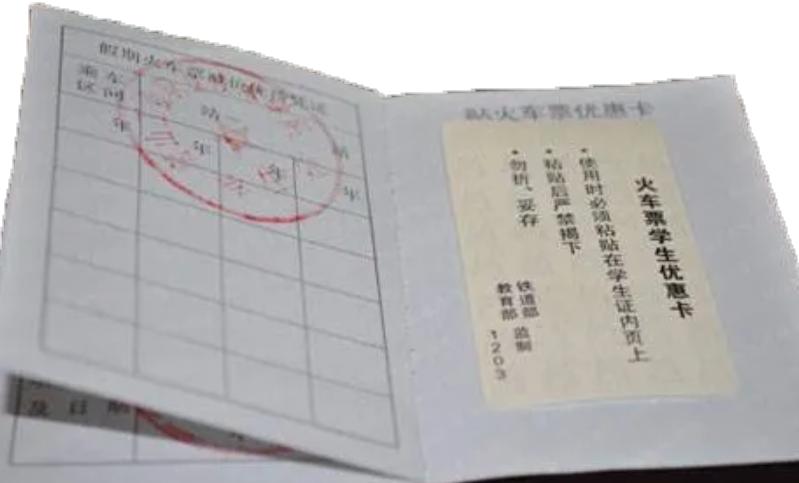 假期火车票
乘车
区间
站—
站
年
年
年
年
及日期
贴火车票优惠卡
火车票学生优惠卡
·使用时必须粘贴在学生证内页上
·粘贴后严禁揭下
·勿折、妥存
铁道部
教育部
监制
1203